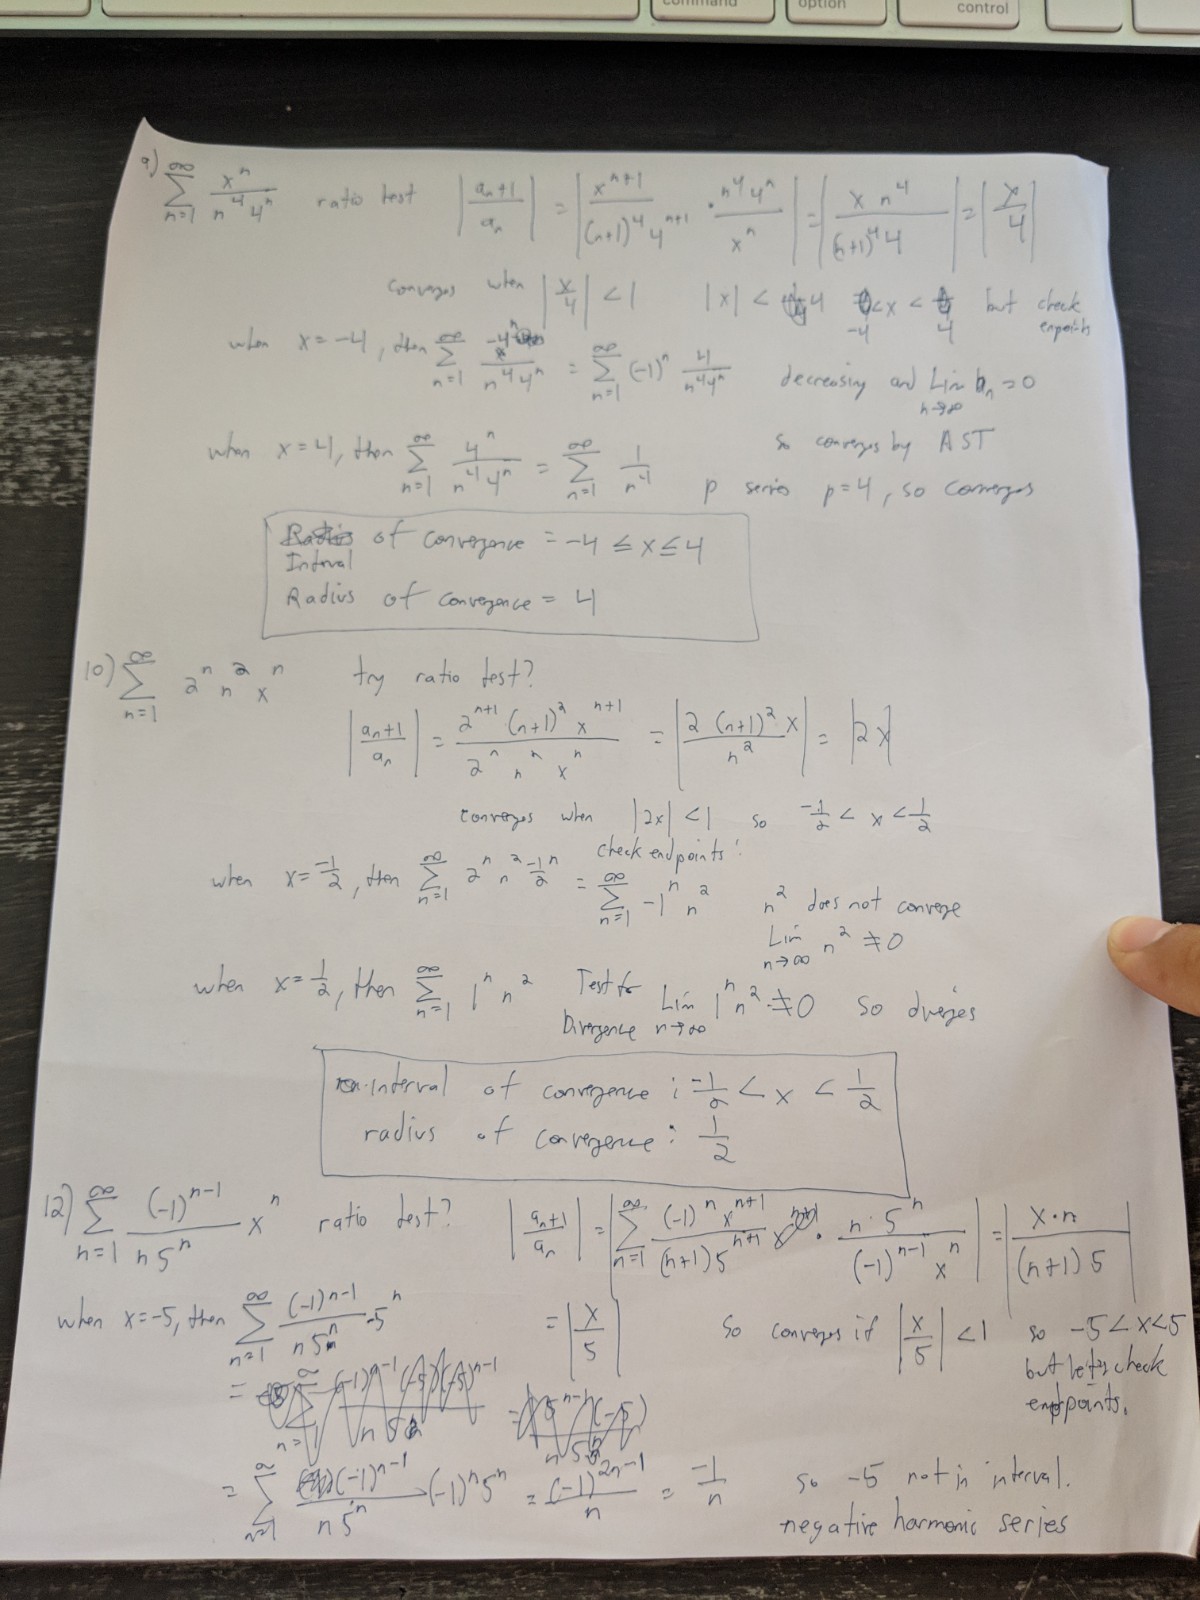 command option control
9) ∞∑n=1 x^n / n^4 4^n ratio test |a_n+1 / a_n| = |x^n+1 / (n+1)^4 4^n+1 · n^4 4^n / x^n| = |x n^4 / (n+1)^4 4| = |x/4|
converges when |x/4| < 1 |x| < 4 -4 < x < 4 but check enpoints
when x = -4, then ∞∑n=1 -4^n / n^4 4^n = ∞∑n=1 (-1)^n 4 / n^4 4^n decreasing and Lim n→∞ b_n = 0
so converges by AST
when x = 4, then ∞∑n=1 4^n / n^4 4^n = ∞∑n=1 1 / n^4 p series p=4, so converges
Interval of convergence = -4 ≤ x ≤ 4
Radius of convergence = 4
10) ∞∑n=1 2^n n^2 x^n try ratio test?
|a_n+1 / a_n| = 2^n+1 · (n+1)^2 x^n+1 / 2^n n^n x^n = |2 (n+1)^2 x / n^2| = |2x|
converges when |2x| < 1 so -1/2 < x < 1/2
check endpoints:
when x = -1/2, then ∞∑n=1 2^n n^2 -1/2^n = ∞∑n=1 -1^n n^2 n^2 does not converge
Lim n→∞ n^2 ≠ 0
when x = 1/2, then ∞∑n=1 1^n n^2 Test for Divergence Lim n→∞ 1^n n^2 ≠ 0 so diverges
interval of convergence : -1/2 < x < 1/2
radius of convergence : 1/2
12) ∞∑n=1 (-1)^n-1 / n 5^n x^n ratio test? |a_n+1 / a_n| = |∞∑n=1 (-1)^n x^n+1 / (n+1) 5^n+1 · n · 5^n / (-1)^n-1 x^n| = |x · n / (n+1) 5|
= |x/5| so converges if |x/5| < 1 so -5 < x < 5
but let's check
endpoints.
when x = -5, then ∞∑n=1 (-1)^n-1 / n 5^n -5^n
= ∞∑n=1 (-1)^n-1 / n 5^n (-1)^n 5^n = (-1)^2n-1 / n = -1/n so -5 not in interval.
negative harmonic series